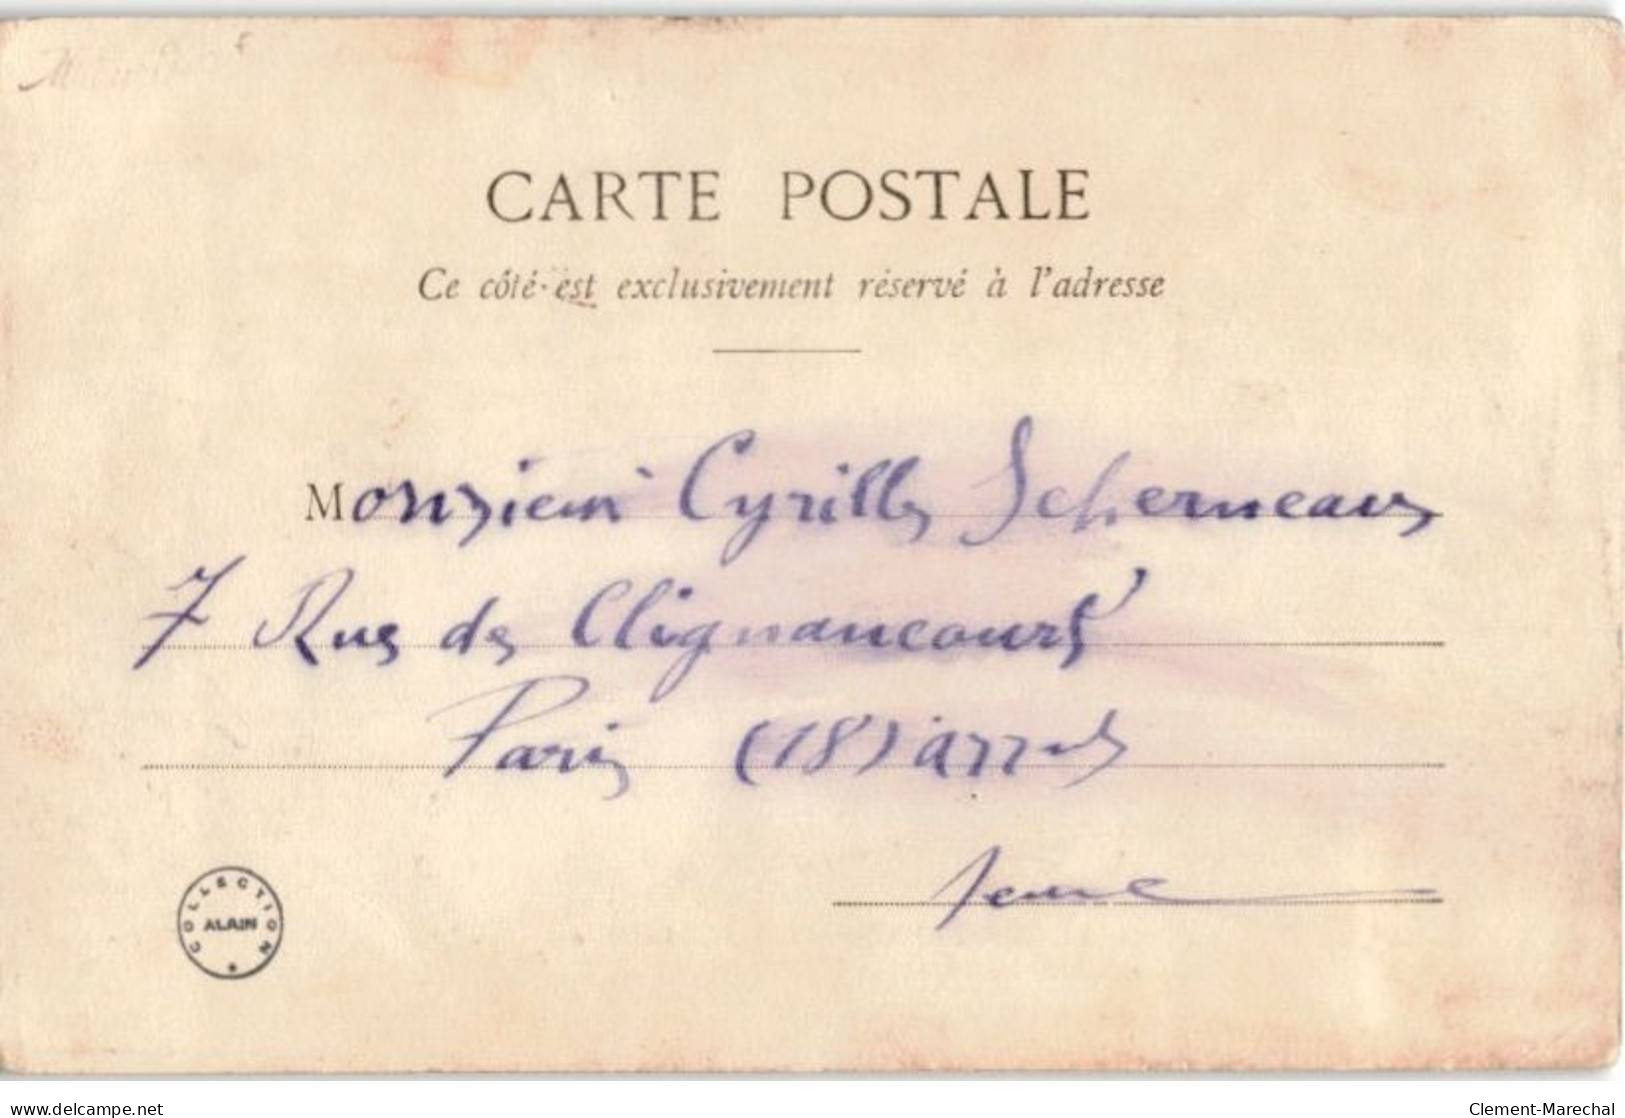 CARTE POSTALE
Ce côté est exclusivement réservé à l'adresse
Monsieur Cyrille Scherneaus
7 Rue de Clignancourt
Paris (18) arrt
Seine
COLLECTION
ALAIN
delcampe.net
Clement-Marechal